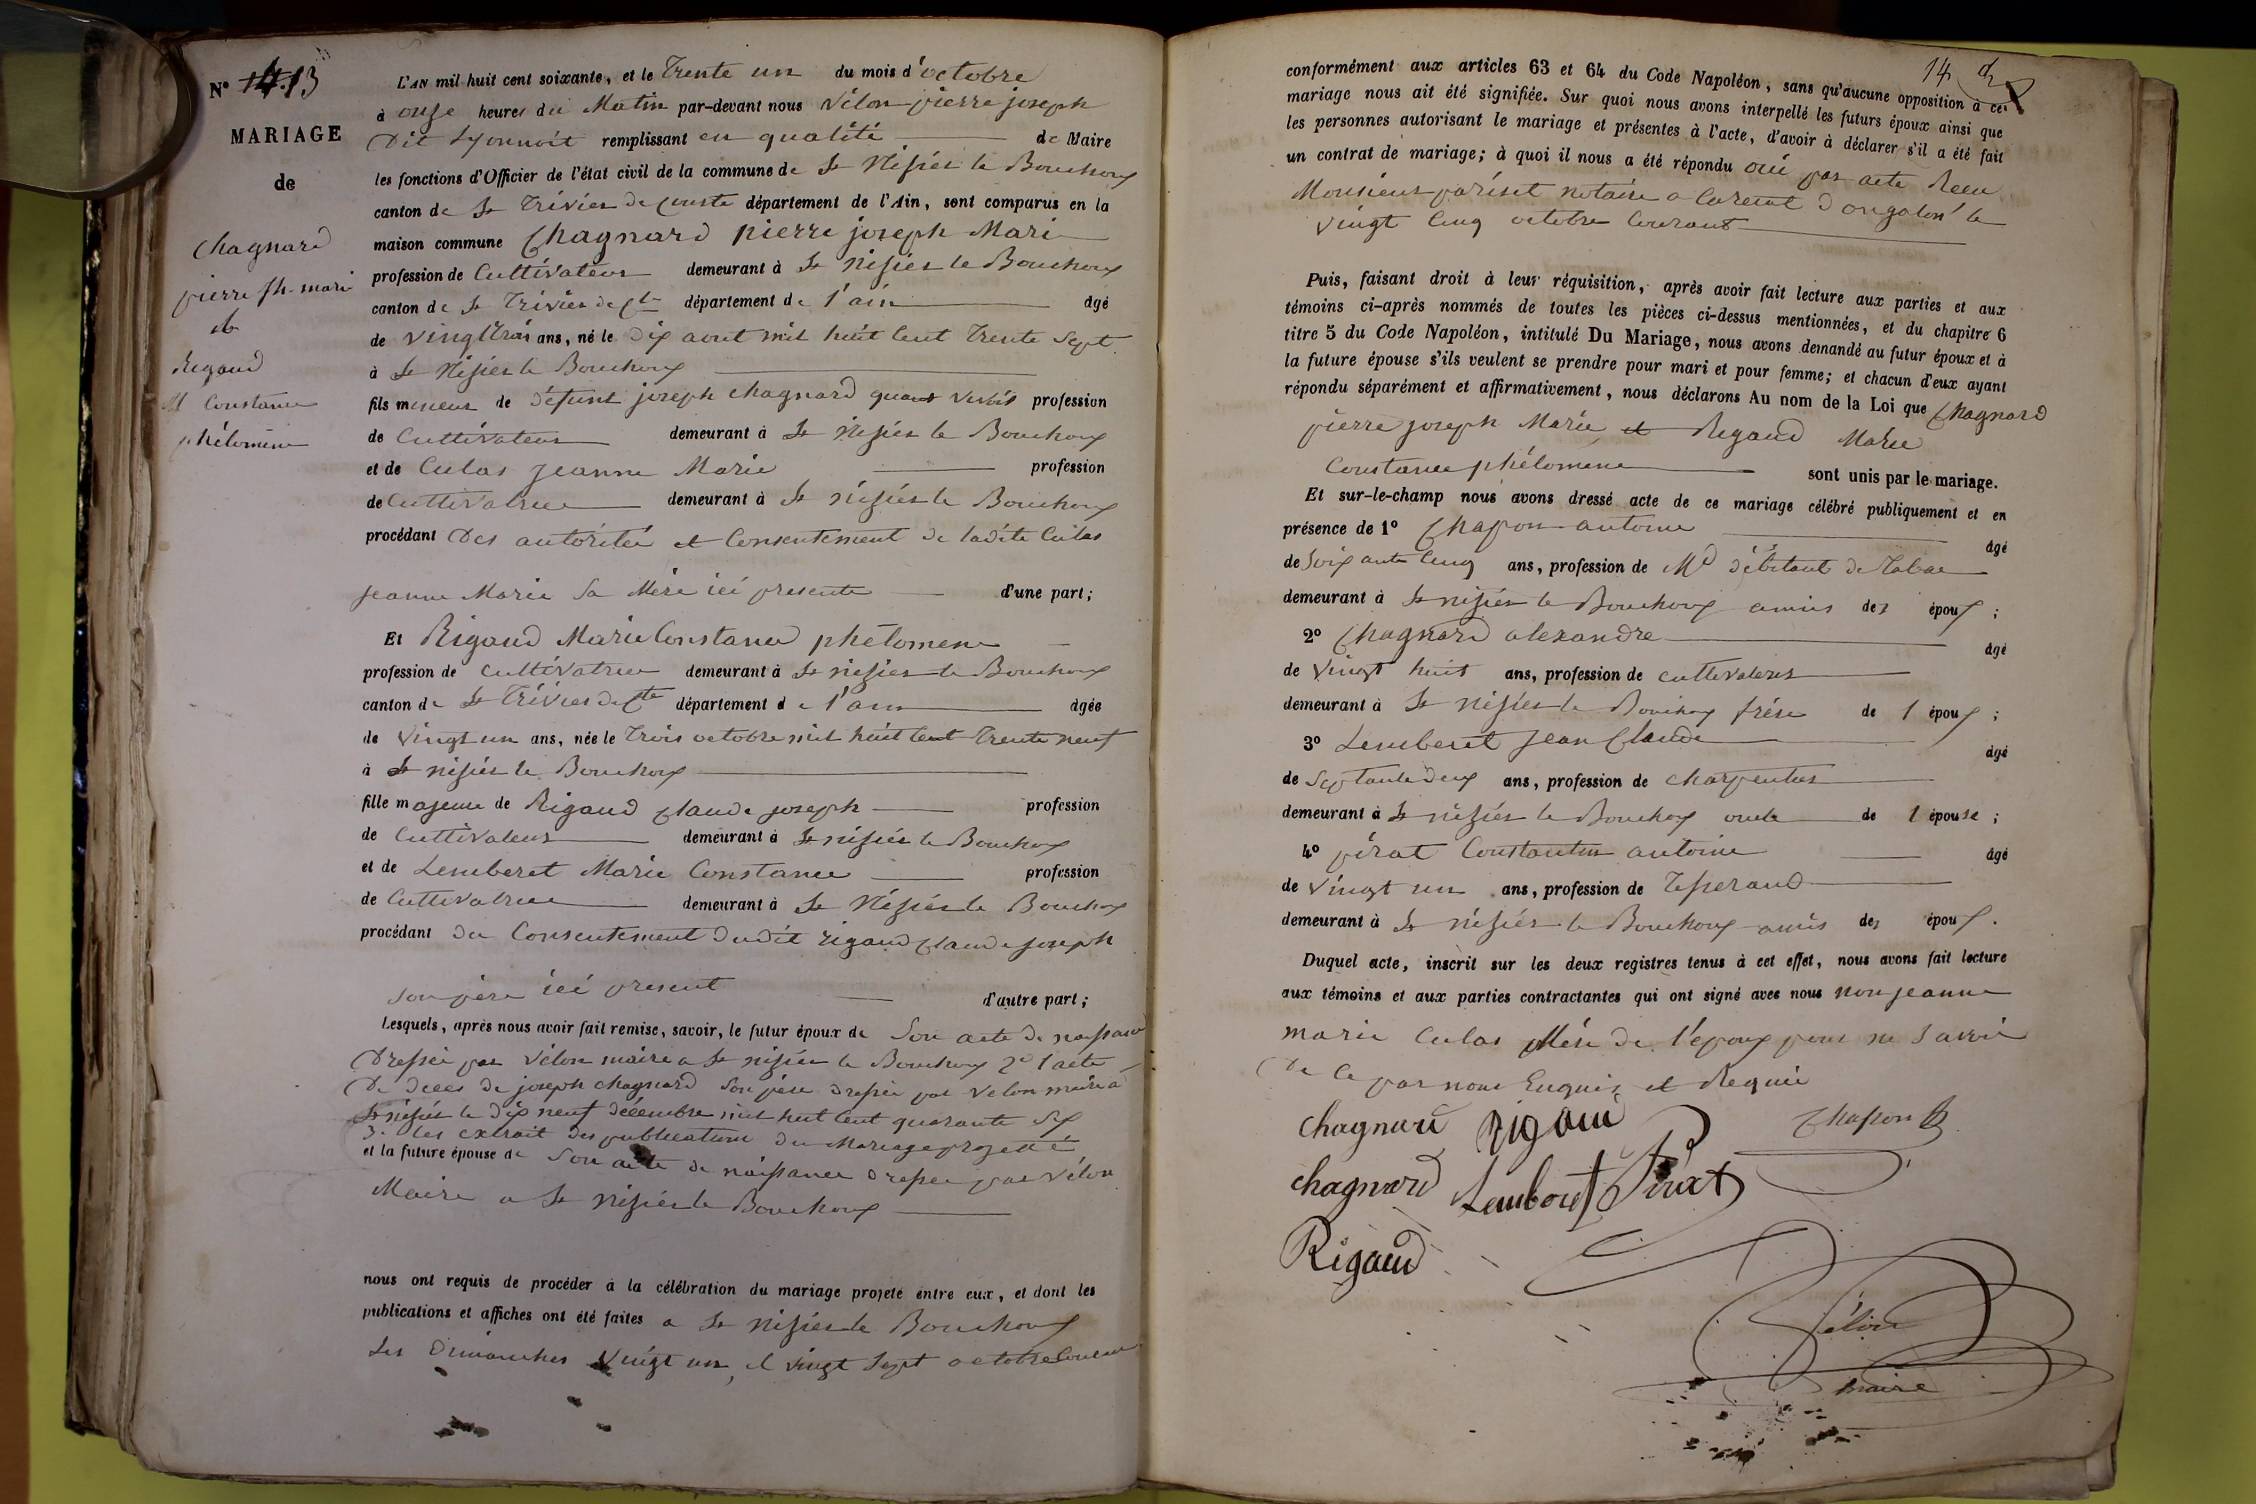 N° 14. 13
MARIAGE
de
Chagnard
pierre jh mari
&
Rigaud
M Constance
phélomène
L'AN mil huit cent soixante, et le Trente un du mois d'octobre
à onze heures du Matin par-devant nous Vélon pierre joseph
Dit Lyonnoit remplissant en qualité de Maire
les fonctions d'Officier de l'état civil de la commune de St Nisiés le Bouchoux
canton de St Triviés de Courte département de l'Ain, sont comparus en la
maison commune Chagnard pierre joseph Mari
profession de Cultivateur demeurant à St Nisiés le Bouchoux
canton de St Triviés de Cte département de l'ain âgé
de vingt trois ans, né le dix aout mil huit cent trente sept
à St Nisiés le Bouchoux
fils mineur de défunt joseph Chagnard quant vivois profession
de Cultivateur demeurant à St Nisiés le Bouchoux
et de Culas Jeanne Marie profession
de Cultivatrice demeurant à St nisiés le Bouchoux
procédant Des autorité et Consentement de ladite Culas
Jeanne Marie Sa Mère ici presente d'une part;
Et Rigaud Marie Constance phélomene
profession de Cultivatrice demeurant à St nisiés le Bouchoux
canton de St Triviés de Cte département de l'ain âgée
de vingt un ans, née le trois octobre mil huit cent trente neuf
à St nisiés le Bouchoux
fille majeure de Rigaud Claude joseph profession
de Cultivateur demeurant à St nisiés le Bouchoux
et de Lemberet Marie Constance profession
de Cultivatrice demeurant à St Nisiés le Bouchoux
procédant du Consentement dudit Rigaud Claude joseph
son père ici present d'autre part;
Lesquels, après nous avoir fait remise, savoir, le futur époux de Son acte de naissance
Dressée par Vélon maire a St nisiés le Bouchoux 2° l'acte
De deces de joseph Chagnard Son père dressée par Velon maire a
St nisiés le dix neuf décembre mil huit cent quarante six
3° les extrait des publications du Mariage projetté
et la future épouse de Son acte de naissance dressée par Vélon
Maire a St Nisiés le Bouchoux
nous ont requis de procéder à la célébration du mariage projeté entre eux, et dont les
publications et affiches ont été faites a St Nisiés le Bouchoux
Les Dimanches Vingt un, et vingt Sept octobre Courant
14
conformément aux articles 63 et 64 du Code Napoléon, sans qu'aucune opposition à ce
mariage nous ait été signifiée. Sur quoi nous avons interpellé les futurs époux ainsi que
les personnes autorisant le mariage et présentes à l'acte, d'avoir à déclarer s'il a été fait
un contrat de mariage; à quoi il nous a été répondu oui par acte Recu
Monsieur pariset notaire a Curciat d'ongalon le
vingt Cinq octobre Courant
Puis, faisant droit à leur réquisition, après avoir fait lecture aux parties et aux
témoins ci-après nommés de toutes les pièces ci-dessus mentionnées, et du chapitre 6
titre 5 du Code Napoléon, intitulé Du Mariage, nous avons demandé au futur époux et à
la future épouse s'ils veulent se prendre pour mari et pour femme; et chacun d'eux ayant
répondu séparément et affirmativement, nous déclarons Au nom de la Loi que Chagnard
pierre joseph Marie et Rigaud Marie
Constance phélomène sont unis par le mariage.
Et sur-le-champ nous avons dressé acte de ce mariage célébré publiquement et en
présence de 1° Chapon antoine âgé
de Soixante Cinq ans, profession de Md débitant de Tabac
demeurant à St nisiés le Bouchoux amis des époux;
2° Chagnard alexandre âgé
de vingt huit ans, profession de cultivateur
demeurant à St nisiés le Bouchoux frére de l époux;
3° Lemberet Jean Claude âgé
de Septante deux ans, profession de charpentier
demeurant à St nisiés le Bouchoux oncle de l épouse;
4° pérat Constantin antoine âgé
de vingt un ans, profession de Tisserand
demeurant à St nisiés le Bouchoux amis des époux.
Duquel acte, inscrit sur les deux registres tenus à cet effet, nous avons fait lecture
aux témoins et aux parties contractantes qui ont signé avec nous non jeanne
marie Culas Mère de l'époux pour ne Savoir
De Ce par nous Enquis et Requis
Chagnard Rigaud Chapon
Chagnard Lemberet Pérat
Rigaud
Vélon
maire